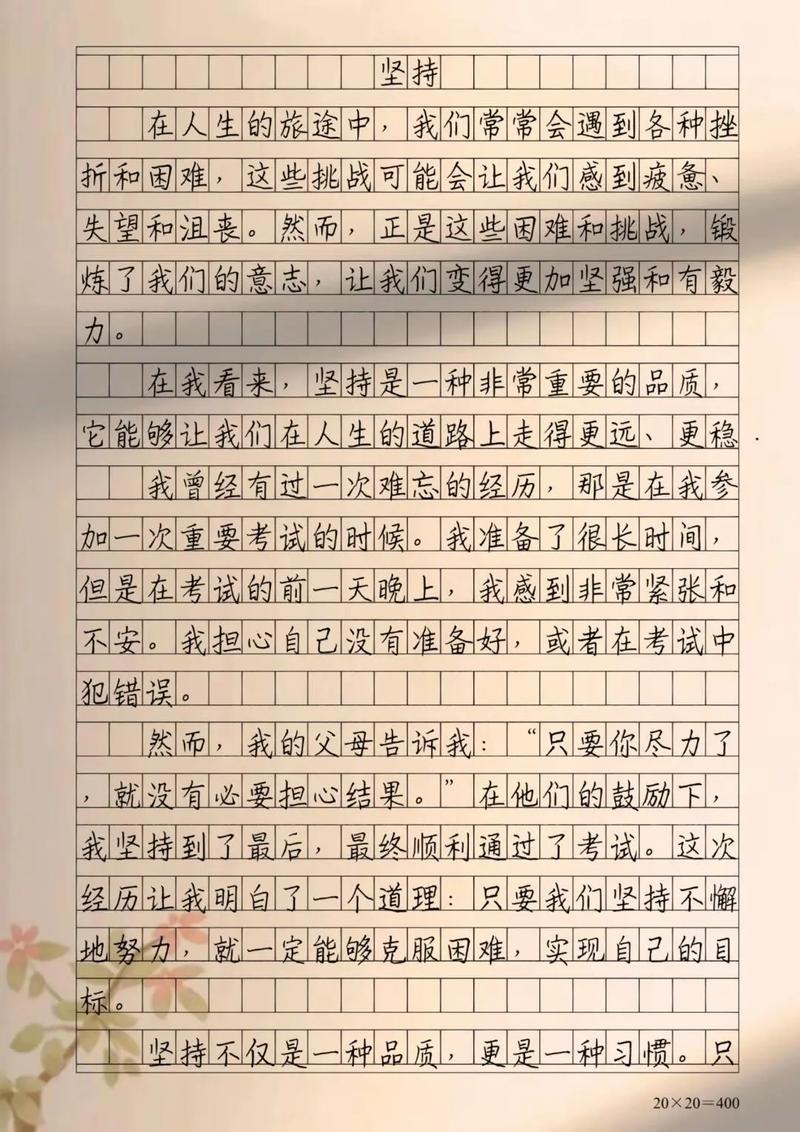 坚持
在人生的旅途中，我们常常会遇到各种挫
折和困难，这些挑战可能会让我们感到疲惫、
失望和沮丧。然而，正是这些困难和挑战，锻
炼了我们的意志，让我们变得更加坚强和有毅
力。
在我看来，坚持是一种非常重要的品质，
它能够让我们在人生的道路上走得更远、更稳.
我曾经有过一次难忘的经历，那是在我参
加一次重要考试的时候。我准备了很长时间，
但是在考试的前一天晚上，我感到非常紧张和
不安。我担心自己没有准备好，或者在考试中
犯错误。
然而，我的父母告诉我：“只要你尽力了
，就没有必要担心结果。”在他们的鼓励下，
我坚持到了最后，最终顺利通过了考试。这次
经历让我明白了一个道理：只要我们坚持不懈
地努力，就一定能够克服困难，实现自己的目
标。
坚持不仅是一种品质，更是一种习惯。只
20×20=400